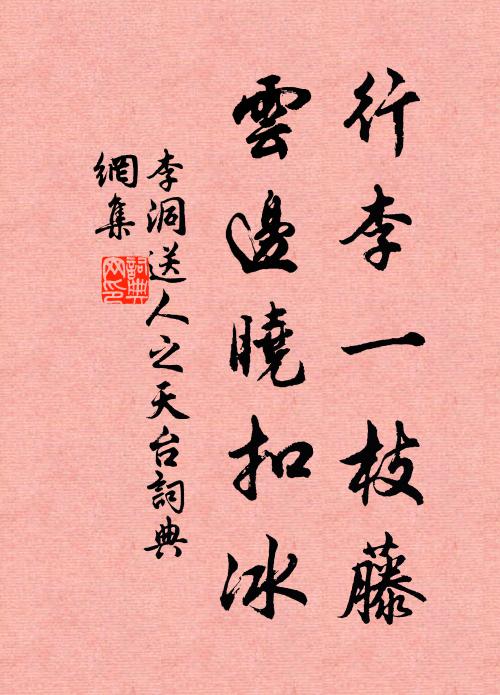 行李一枝藤
雲邊曉扣冰
李洞送人之天台詞典
網集
詞典
网印